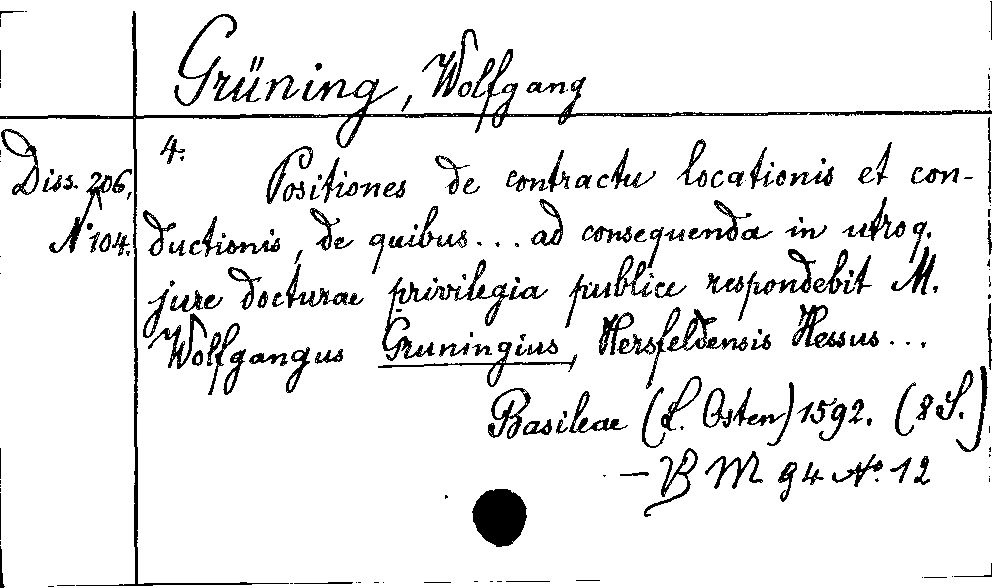 Grüning, Wolfgang
Diss. 206,
N° 104.
4.
Positiones de contractu locationis et con-
ductionis, de quibus... ad consequenda in utroq.
jure docturae privilegia publice respondebit M.
Wolfgangus Gruningius, Hersfeldensis Hessus...
Basileae (L. Osten) 1592. (8 S.)
- B M 94 No. 12